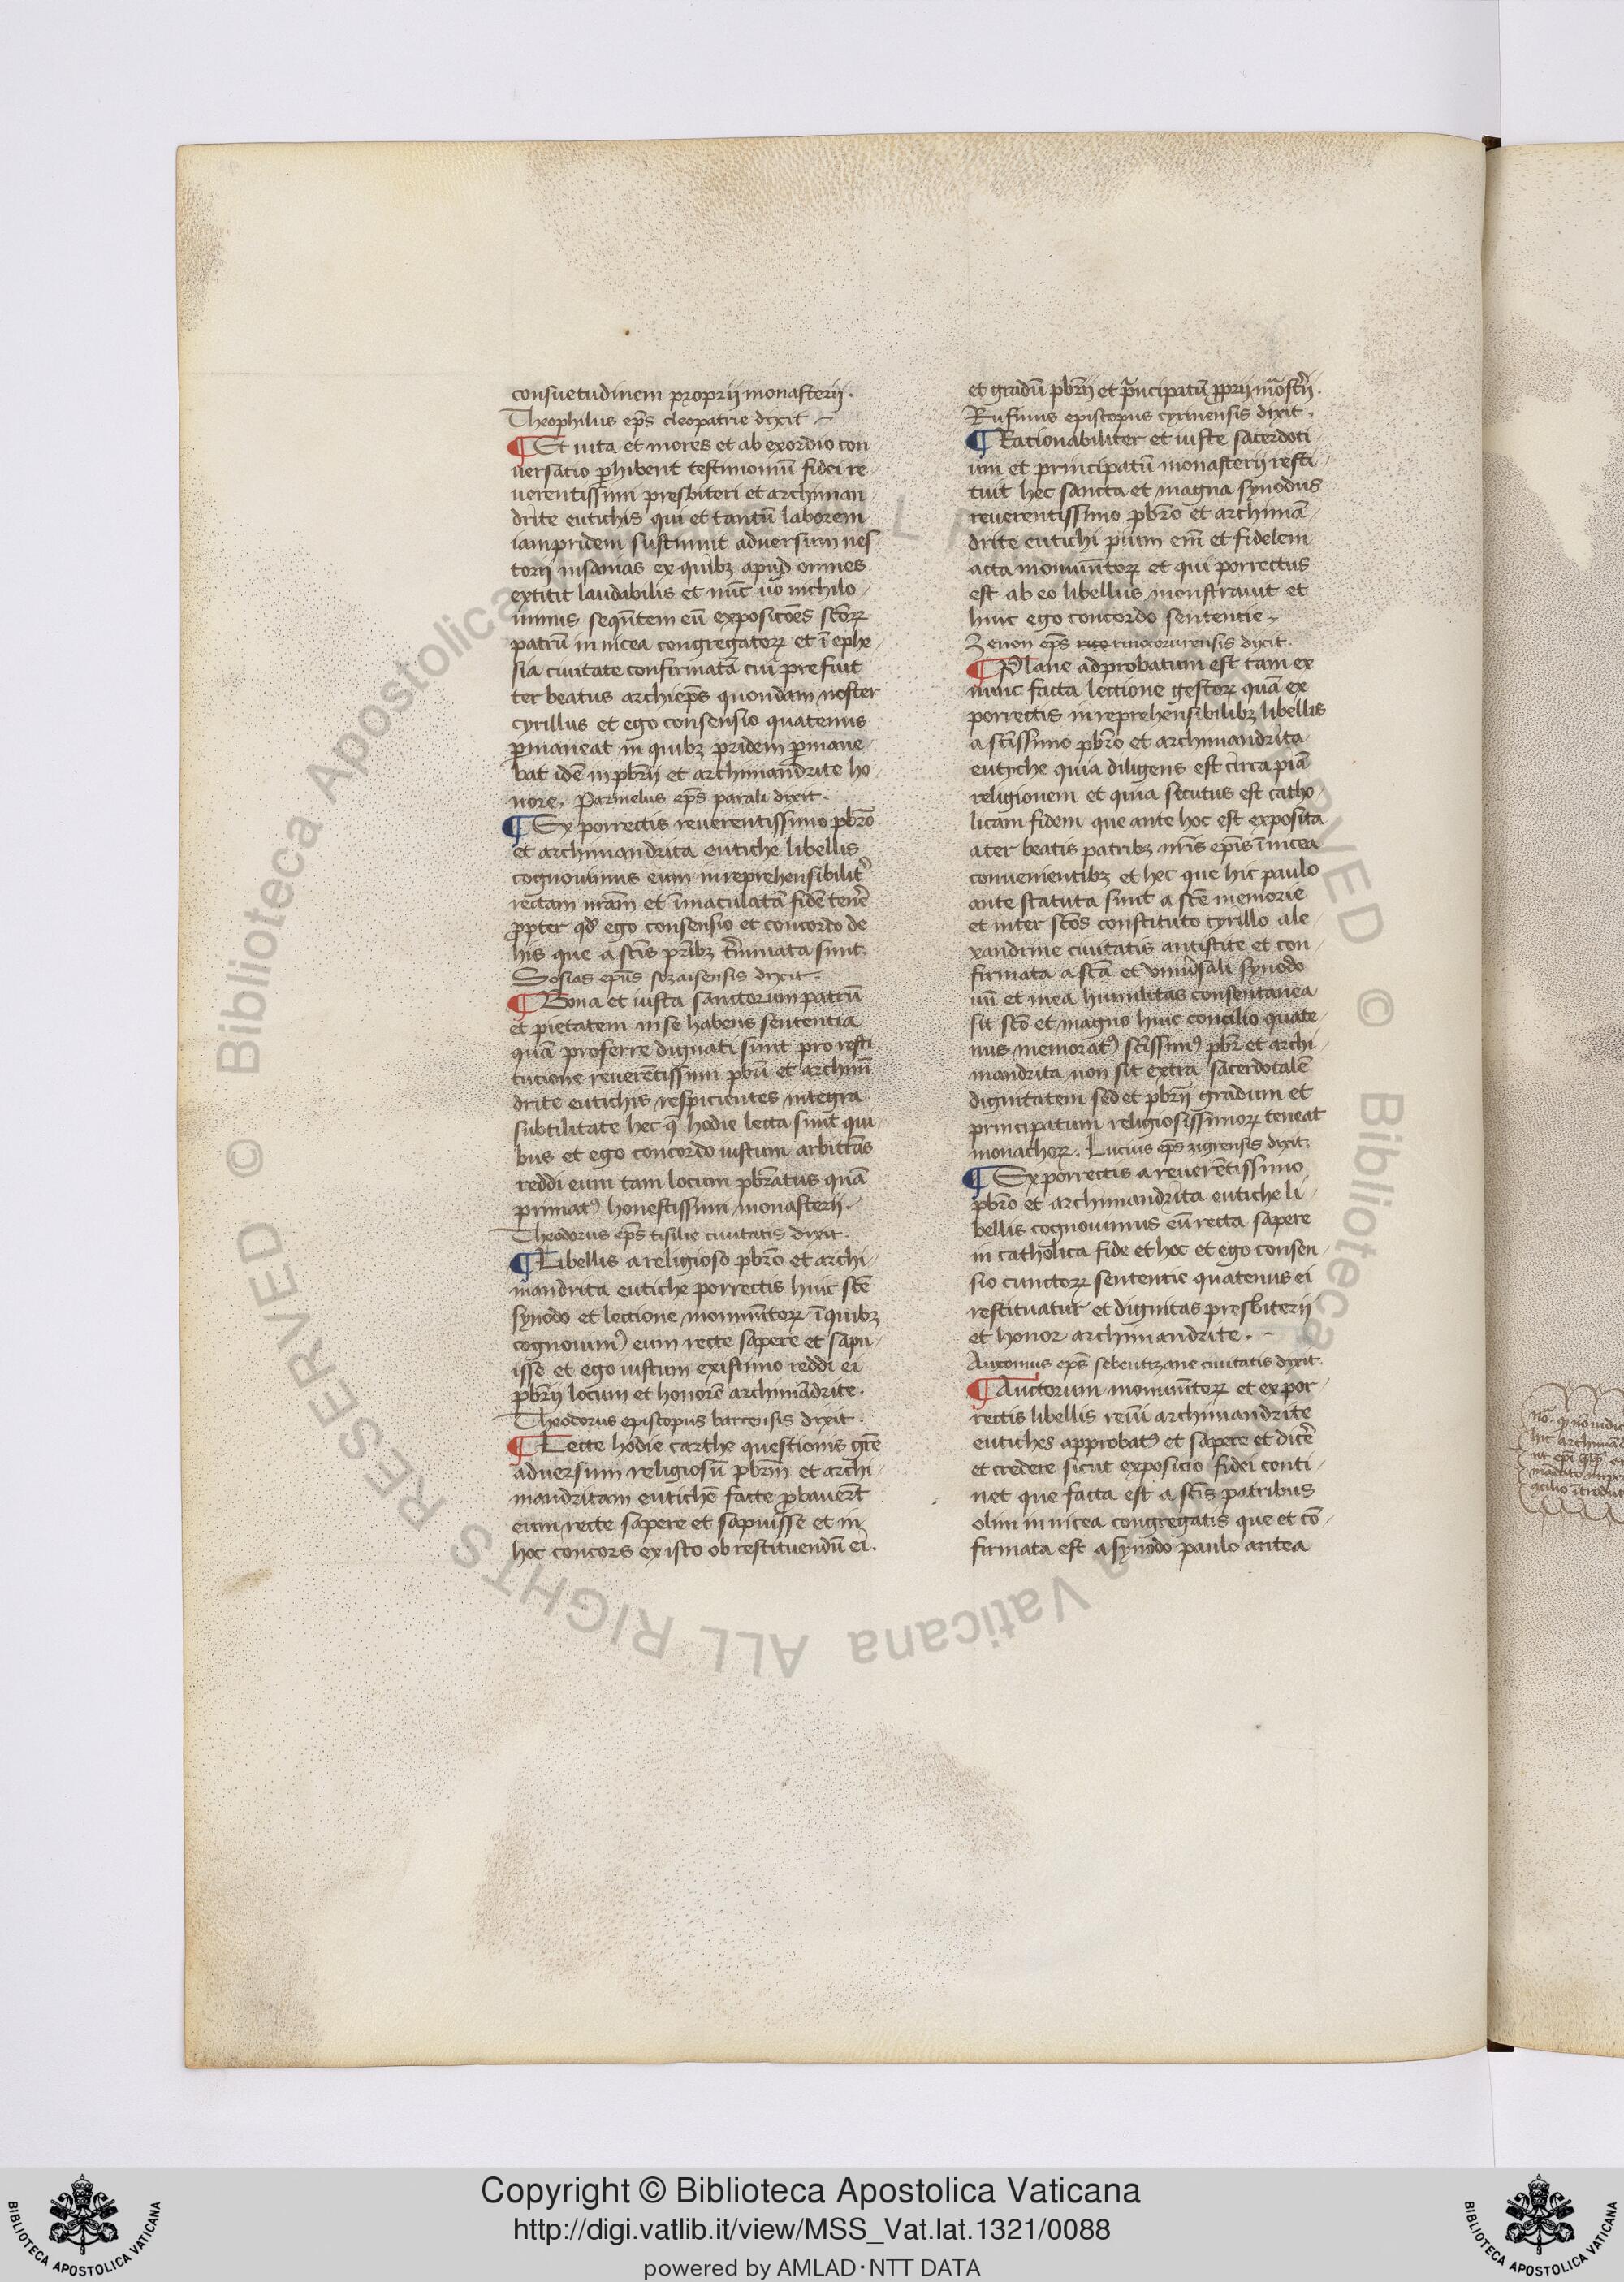 consuetudinem proprij monasterij.
Theophilus ep̄s cleopatrie dixit
¶Et uita et mores et ab exordio con
uersatio ꝑhibent testimoniū fidei re
uerentissimi presbiteri et archiman
drite euticĥis qui et tantū laborem
iampridem sustinuit aduersum nes
torij insanias ex quibꝫ apud omnes
extitit laudabilis et nūc uō nichilo
minus seqn̄tem eū exposicōes sc̄orꝝ
patrū in nicea congregatorꝝ et ī ephe
sia ciuitate confirmatā cui prefuit
ter beatus archiep̄s quondam noster
cyrillus et ego consensio quatenus
ꝑmaneat in quibꝫ pridem ꝑmane
bat idē in pb̄rij et archimandrite ho
nore. Parmelus ep̄s parali dixit.
¶Ex porrectis reuerentissimo pb̄ro
et archimandrita eutiche libellis
cognouimus eum inreprehensibilit̄
rectam nr̄am et īmaculatā fidē tenēr
ꝓpter qd̄ ego consensio et concordo de
his que a sc̄is pr̄ibꝫ t̄minata sunt.
Sosias ep̄us sozaisensis dixit.
¶Bona et iusta sanctorum patrū
et pietatem in se habens sententia
quā proferre dignati sunt pro resti
tucione reuerētissimi pb̄ri et archim̄
drite eutichis respicientes integra
subtilitate hec q̨ hodie lecta sunt qui
bus et ego concordo iustum arbittās
reddi eum tam locum pb̄ratus quā
primatꝰ honestissimi monasterij.
Theodorus ep̄s tisilie ciuitatis dixit.
¶Libellis a religioso pb̄ro et archi
mandrita eutiche porrectis huic sc̄e
synodo et lectione monum̄torꝝ ī quibꝫ
cognouimꝰ eum recte sapere et sapu
isse et ego iustum existimo reddi ei
pb̄rij locum et honorē archimādrite.
Theodorus episcopus barcensis dixit.
¶Lecte hodie carthe questionis gr̄e
aduersum religiosū pb̄rm̄ et archi
mandritam eutichē facte ꝓbauert̄
eum recte sapere et sapuisse et in
hoc concors existo ob restituendū ei.
et gradū pb̄rij et p̄ncipatū ꝓprij mōstr̄ij.
Rufinus episcopus cyrinensis dixit.
¶Rationabiliter et iuste sacerdoti
um et principatū monasterij resti
tuit hec sancta et magna synodus
reuerentissimo pb̄ro et archimā
drite eutichi pium em̄ et fidelem
acta monum̄torꝝ et qui porrectus
est ab eo libellus monstrauit et
huic ego concordo sentencie
Zenon ep̄s rinocorurensis dixit.
¶Plane adprobatum est tam ex
nunc facta lectione gestorꝝ quā ex
porrectis inreprehensibilibꝫ libellis
a sc̄issimo pb̄ro et archimandrita
eutyche quia diligens est circa piā
religionem et quia secutus est catho
licam fidem que ante hoc est exposita
ater beatis patribꝫ nr̄is ep̄is ī nicea
conuenientibꝫ et hec que hic paulo
ante statuta sunt a sc̄e memorie
et inter sc̄os constituto cyrillo ale
xandrine ciuitatis antistite et con
firmata a sc̄a et vniu̅sali synodo
un̄ et mea humilitas consentanea
sit sc̄o et magno huic concilio quate
nus memoratꝰ sc̄issimꝰ pb̄r et archi
mandrita non sit extra sacerdotalē
dignitatem sed et pb̄rij gradum et
principatum religiosissimorꝝ teneat
monachorꝝ. Lucius ep̄s zigrensis dixit.
¶Ex porrectis a reuerētissimo
pb̄ro et archimandrita eutiche li
bellis cognouimus eū recta sapere
in catholica fide et hoc et ego consen
sio cunctorꝝ sentencie quatenus ei
restituatur et dignitas presbiterij
et honor archimandrite.
Auxonius ep̄s sebentizane ciuitatis dixit.
¶Auctorum monum̄torꝝ et ex por
rectis libellis reuī archimandrite
eutiches approbatꝰ et sapere et dicēr
et credere sicut exposicio fidei conti
net que facta est a sc̄is patribus
olim in nicea congregatis que et cō
firmata est a synodo paulo antea
Copyright © Biblioteca Apostolica Vaticana
http://digi.vatlib.it/view/MSS_Vat.lat.1321/0088
powered by AMLAD·NTT DATA